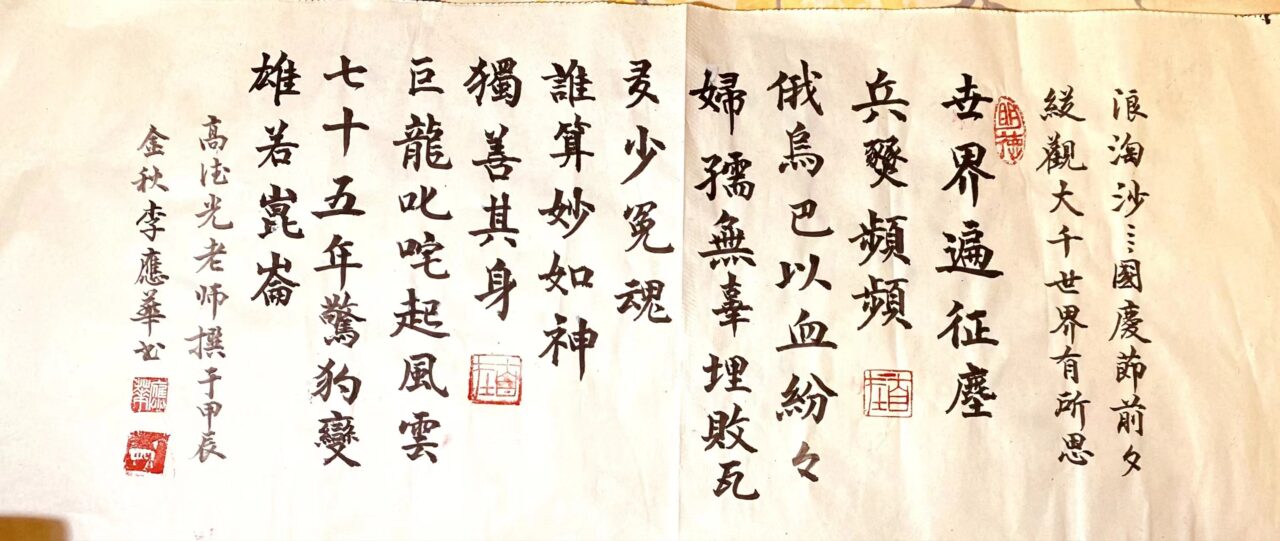 浪淘沙……國慶節前夕
縱觀大千世界有所思
明德
世界遍征塵
兵燹頻頻
俄烏巴以血紛々
婦孺無辜埋敗瓦
多少冤魂
誰算妙如神
獨善其身
巨龍叱咤起風雲
七十五年驚豹變
雄若崑崙
高德光老师撰于甲辰
金秋李應華书
應華